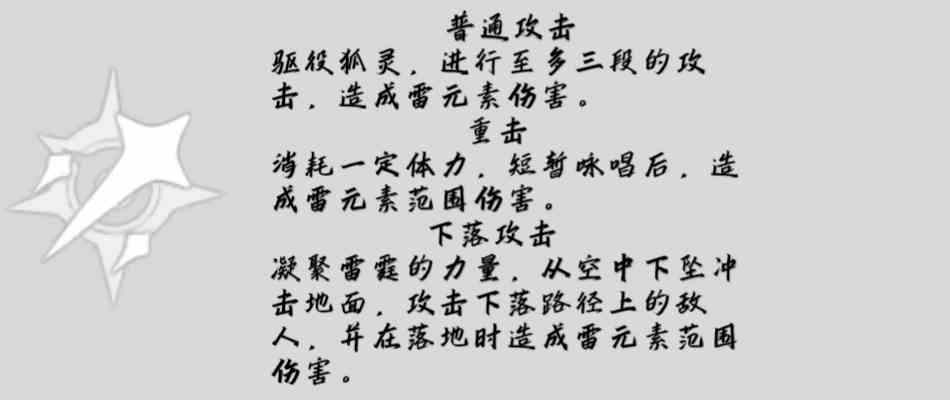 普通攻击
驱役狐灵，进行至多三段的攻
击，造成雷元素伤害。
重击
消耗一定体力，短暂咏唱后，造
成雷元素范围伤害。
下落攻击
凝聚雷霆的力量，从空中下坠冲
击地面，攻击下落路径上的敌
人，并在落地时造成雷元素范围
伤害。